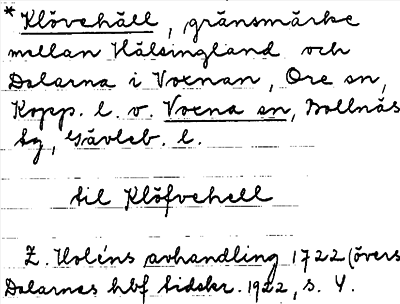 * Klövehäll, gränsmärke
mellan Hälsingland och
Dalarna i Voxnan, Ore sn,
Kopp. l. o. Voxna sn, Bollnäs
tg, Gävleb. l.
til Klöfvehell
Z. Holéns avhandling 1722 (övers
Dalarnas hbf tidskr. 1922, s. 4.